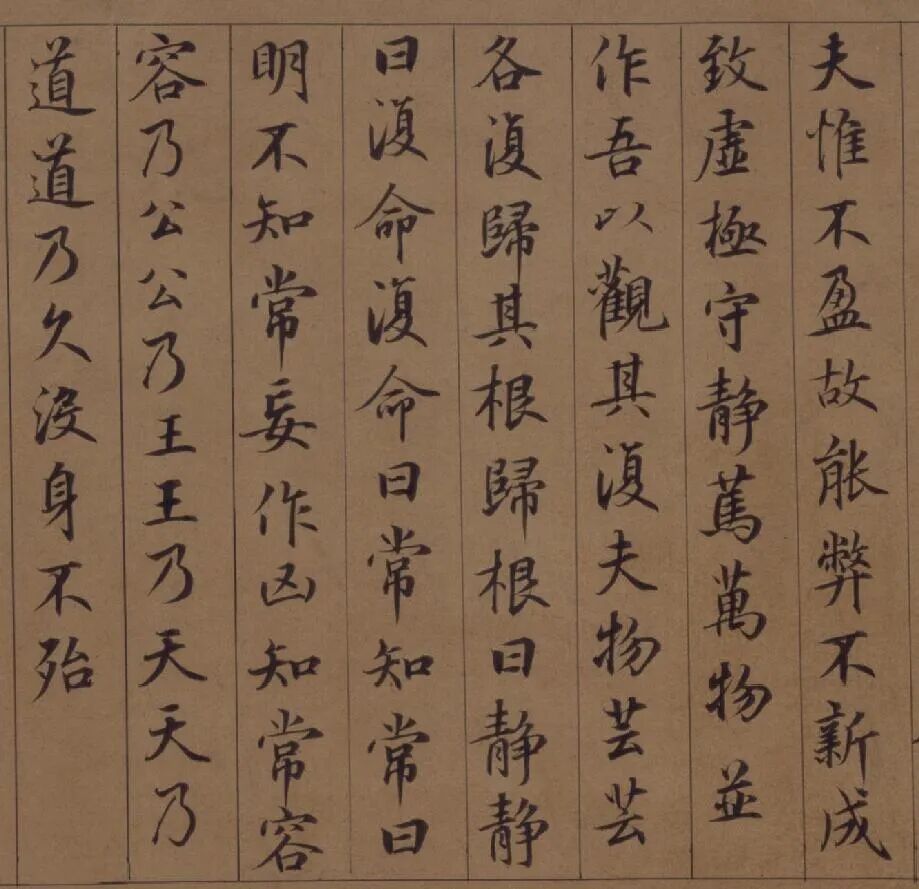 夫惟不盈故能弊不新成
致虛極守靜篤萬物並
作吾以觀其復夫物芸芸
各復歸其根歸根曰靜靜
曰復命復命曰常知常曰
明不知常妄作凶知常容
容乃公公乃王王乃天天乃
道道乃久没身不殆